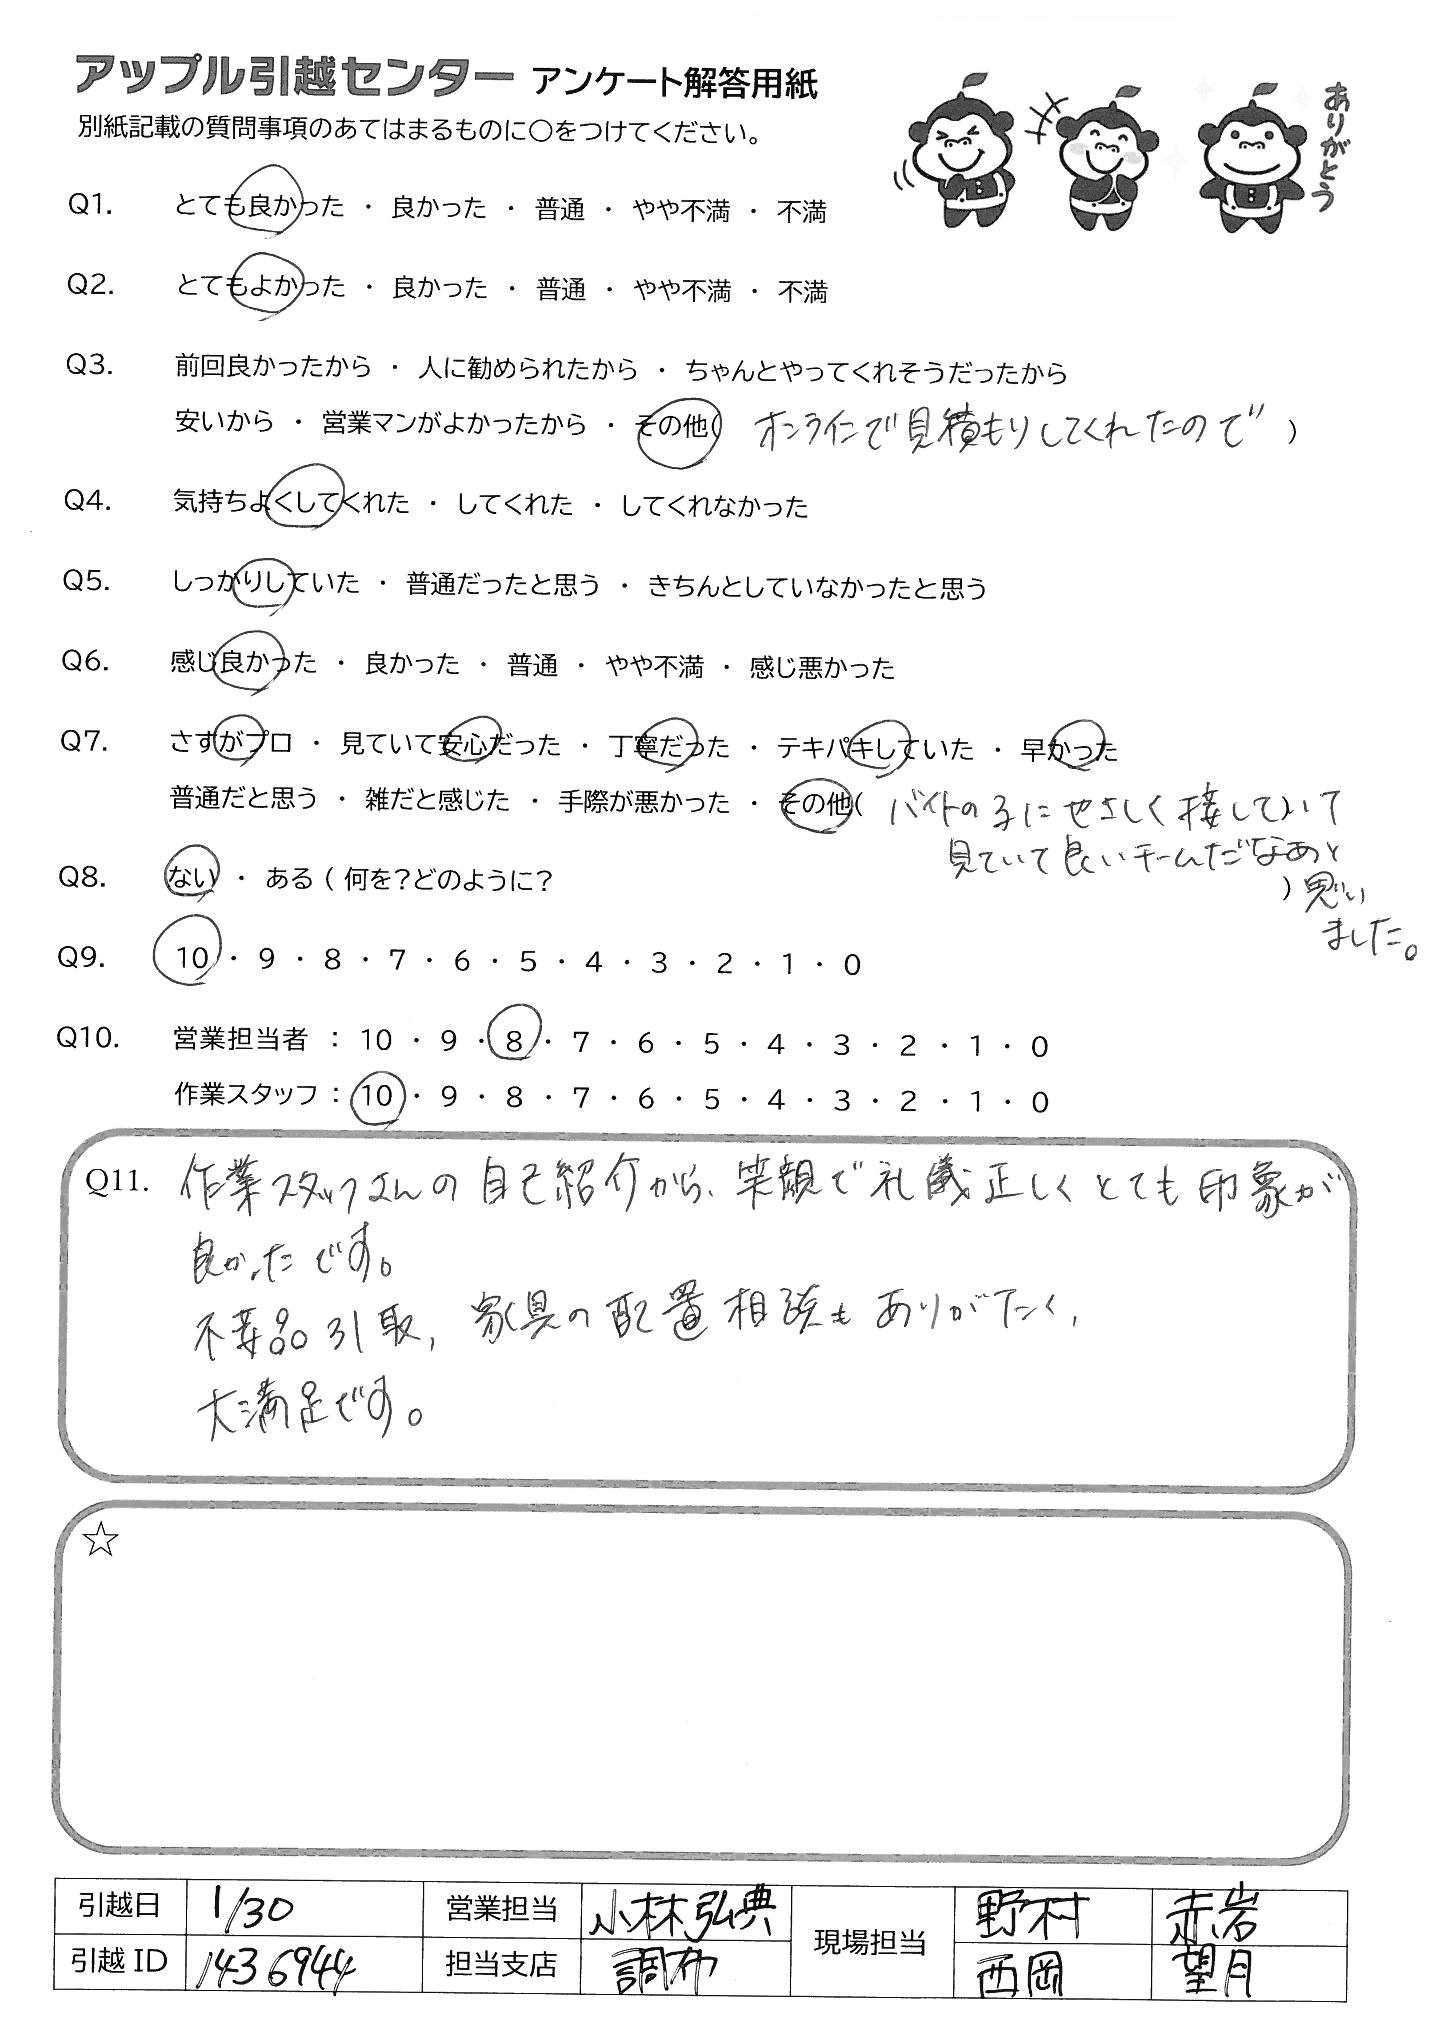 アップル引越センター アンケート解答用紙
別紙記載の質問事項のあてはまるものに○をつけてください。
ありがとう
Q1. とても良かった ・ 良かった ・ 普通 ・ やや不満 ・ 不満
Q2. とてもよかった ・ 良かった ・ 普通 ・ やや不満 ・ 不満
Q3. 前回良かったから ・ 人に勧められたから ・ ちゃんとやってくれそうだったから
安いから ・ 営業マンがよかったから ・ その他( オンラインで見積もりしてくれたので )
Q4. 気持ちよくしてくれた ・ してくれた ・ してくれなかった
Q5. しっかりしていた ・ 普通だったと思う ・ きちんとしていなかったと思う
Q6. 感じ良かった ・ 良かった ・ 普通 ・ やや不満 ・ 感じ悪かった
Q7. さすがプロ ・ 見ていて安心だった ・ 丁寧だった ・ テキパキしていた ・ 早かった
普通だと思う ・ 雑だと感じた ・ 手際が悪かった ・ その他( バイトの子にやさしく接していて
見ていて良いチームだなあと
) 思い
ました。
Q8. ない ・ ある ( 何を?どのように?
Q9. 10 ・ 9 ・ 8 ・ 7 ・ 6 ・ 5 ・ 4 ・ 3 ・ 2 ・ 1 ・ 0
Q10. 営業担当者 : 10 ・ 9 ・ 8 ・ 7 ・ 6 ・ 5 ・ 4 ・ 3 ・ 2 ・ 1 ・ 0
作業スタッフ : 10 ・ 9 ・ 8 ・ 7 ・ 6 ・ 5 ・ 4 ・ 3 ・ 2 ・ 1 ・ 0
Q11. 作業スタッフさんの自己紹介から、笑顔で礼儀正しくとても印象が
良かったです。
不要品引取、家具の配置相談もありがたく、
大満足です。
☆
引越日 1/30 営業担当 小林弘典 現場担当 野村 赤岩
引越ID 1436944 担当支店 調布 西岡 望月